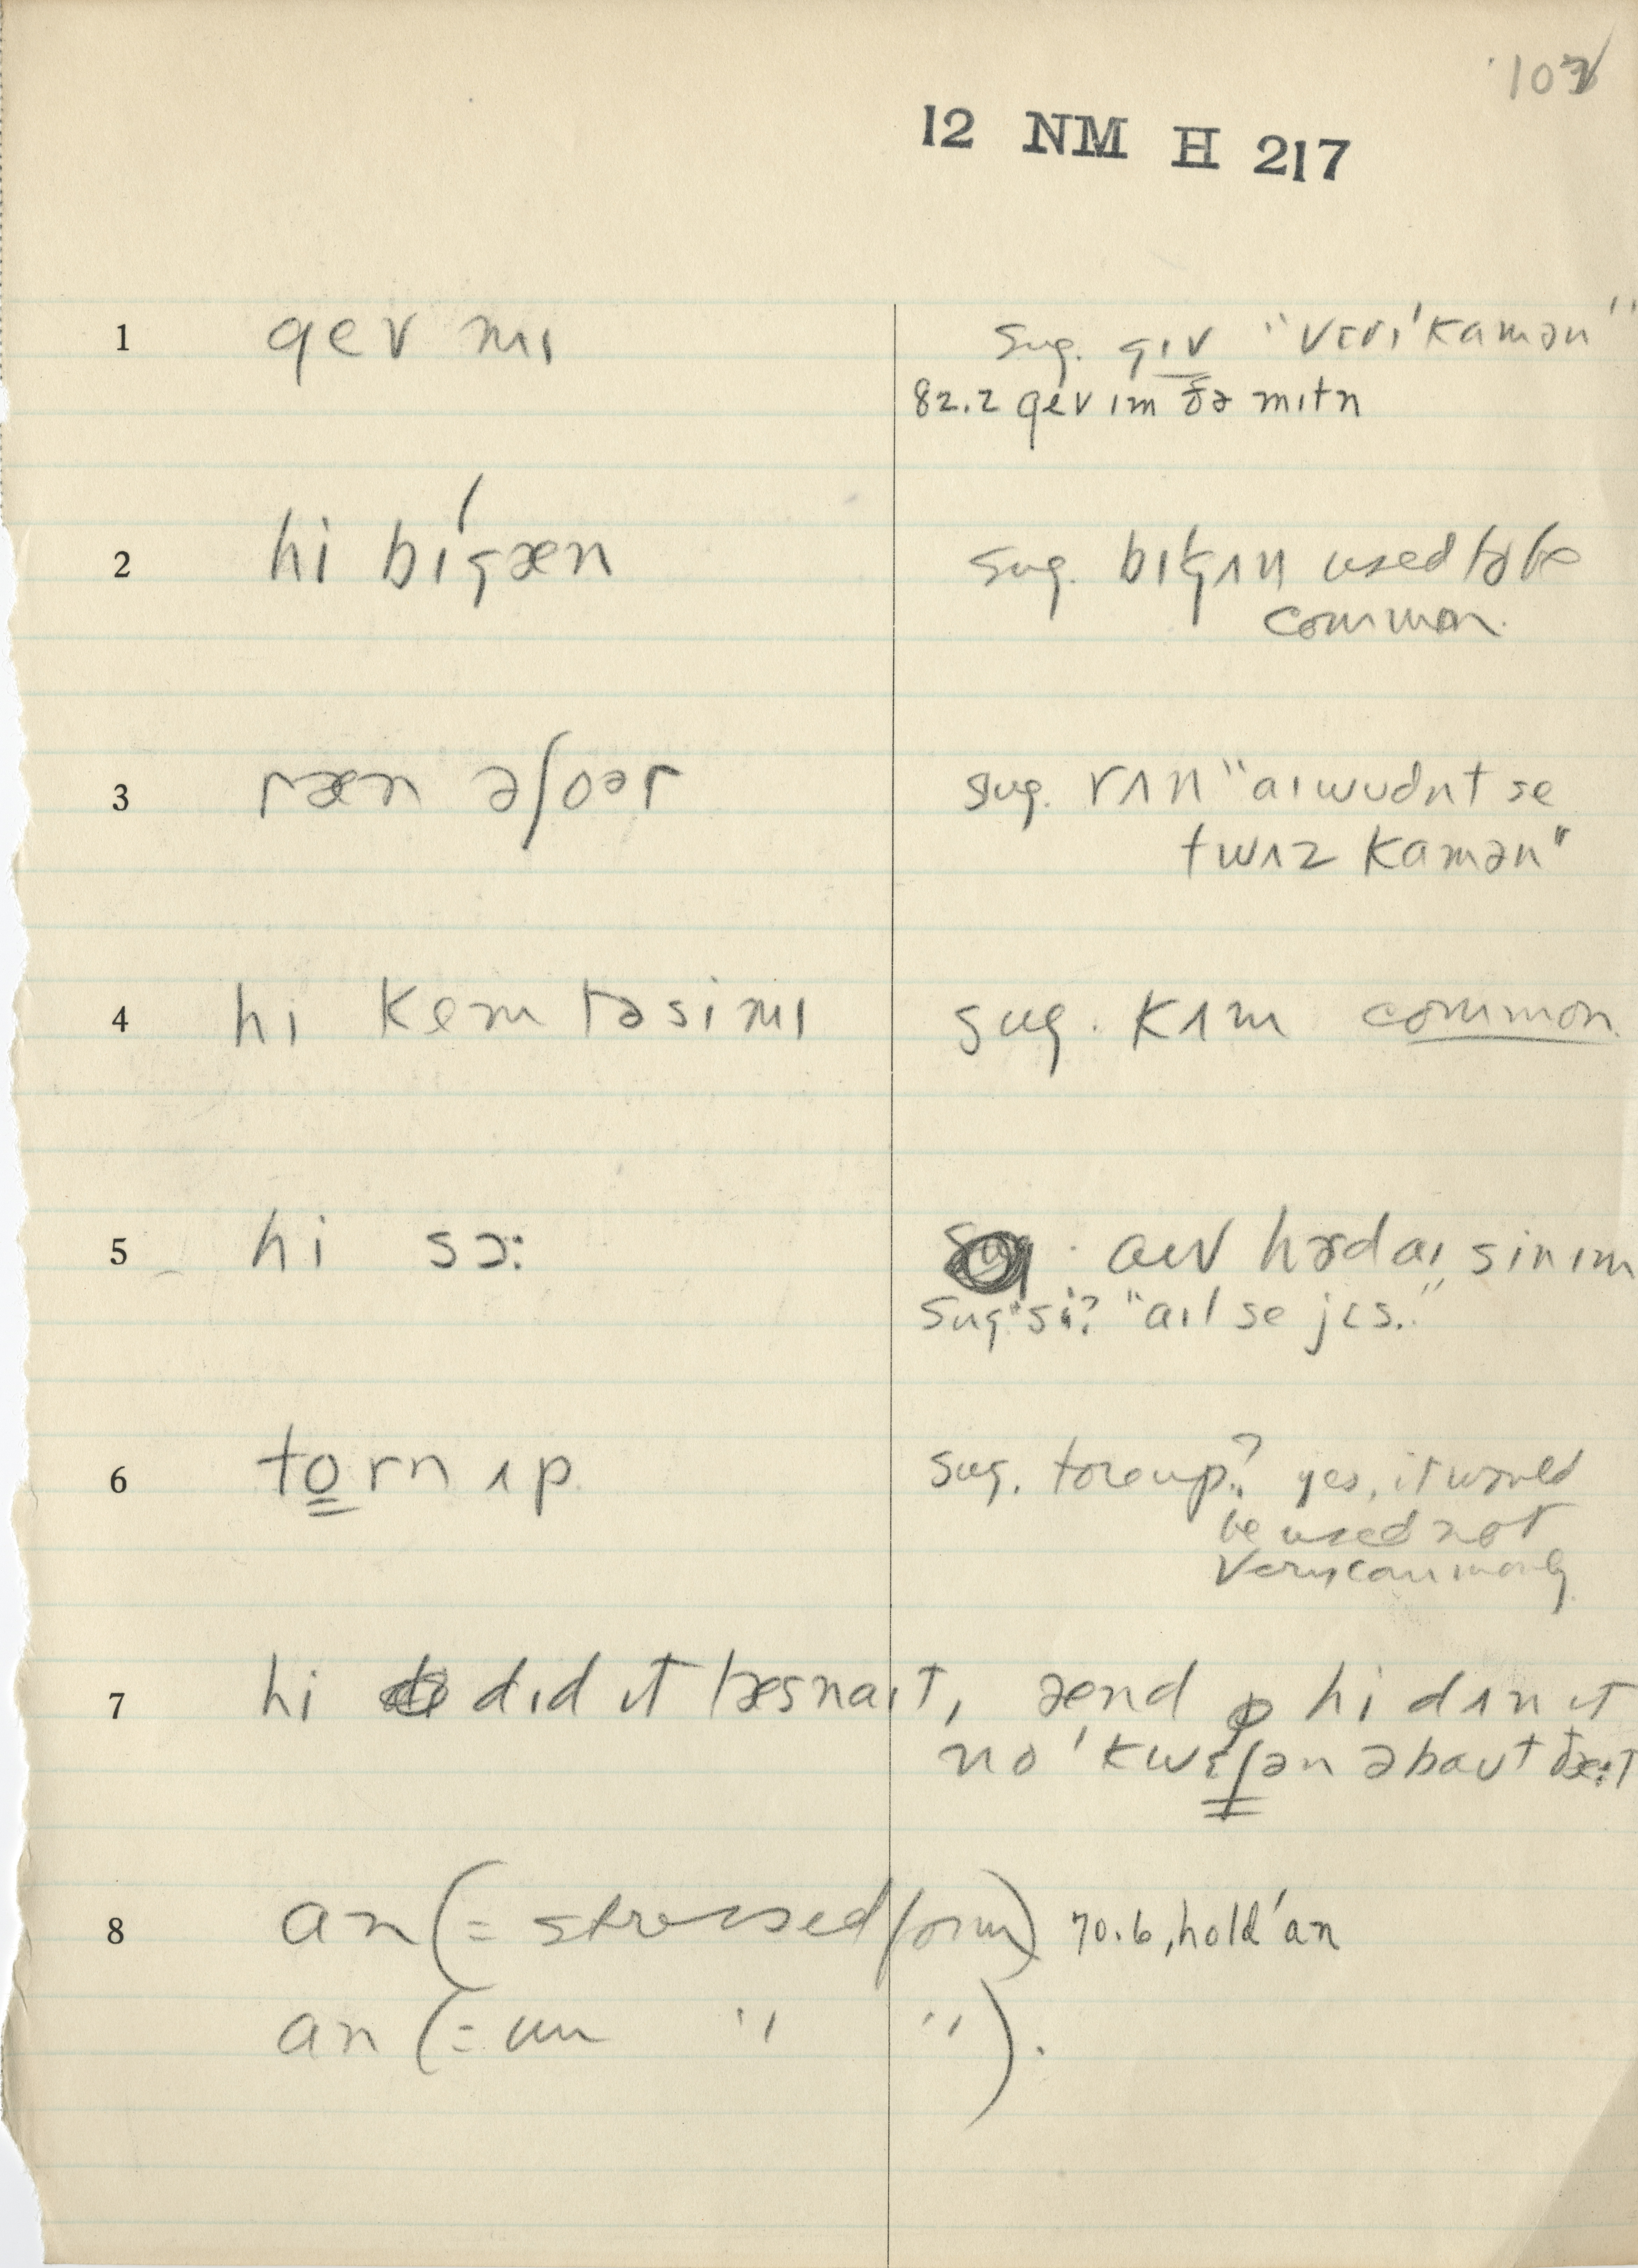 102
12 NM H 217
1 gev mɪ sug. gɪv "vɛrɪ'kamən"
82.2 gev ɪm ðə mɪtn
2 hi bɪ'gæn sug. bɪgʌn used to be
common.
3 ræn əʃoər sug. rʌn "aɪ wudnt se
twʌz kamən"
4 hi kem tə si mɪ sug. kʌm common.
5 hi sɔ: aɪv hɚd aɪ sin ɪm
sug "si? "aɪl se jɛs."
6 torn ʌp. sug. tore up? yes, it would
be used not
very commonly
7 hi dɪd ɪt læs naɪt, ænd hi dʌn ɪt
no 'kwɛʃən əbaut ðæ:t
8 an (= stressed form) 70.6, hold 'an
an (= un " ").